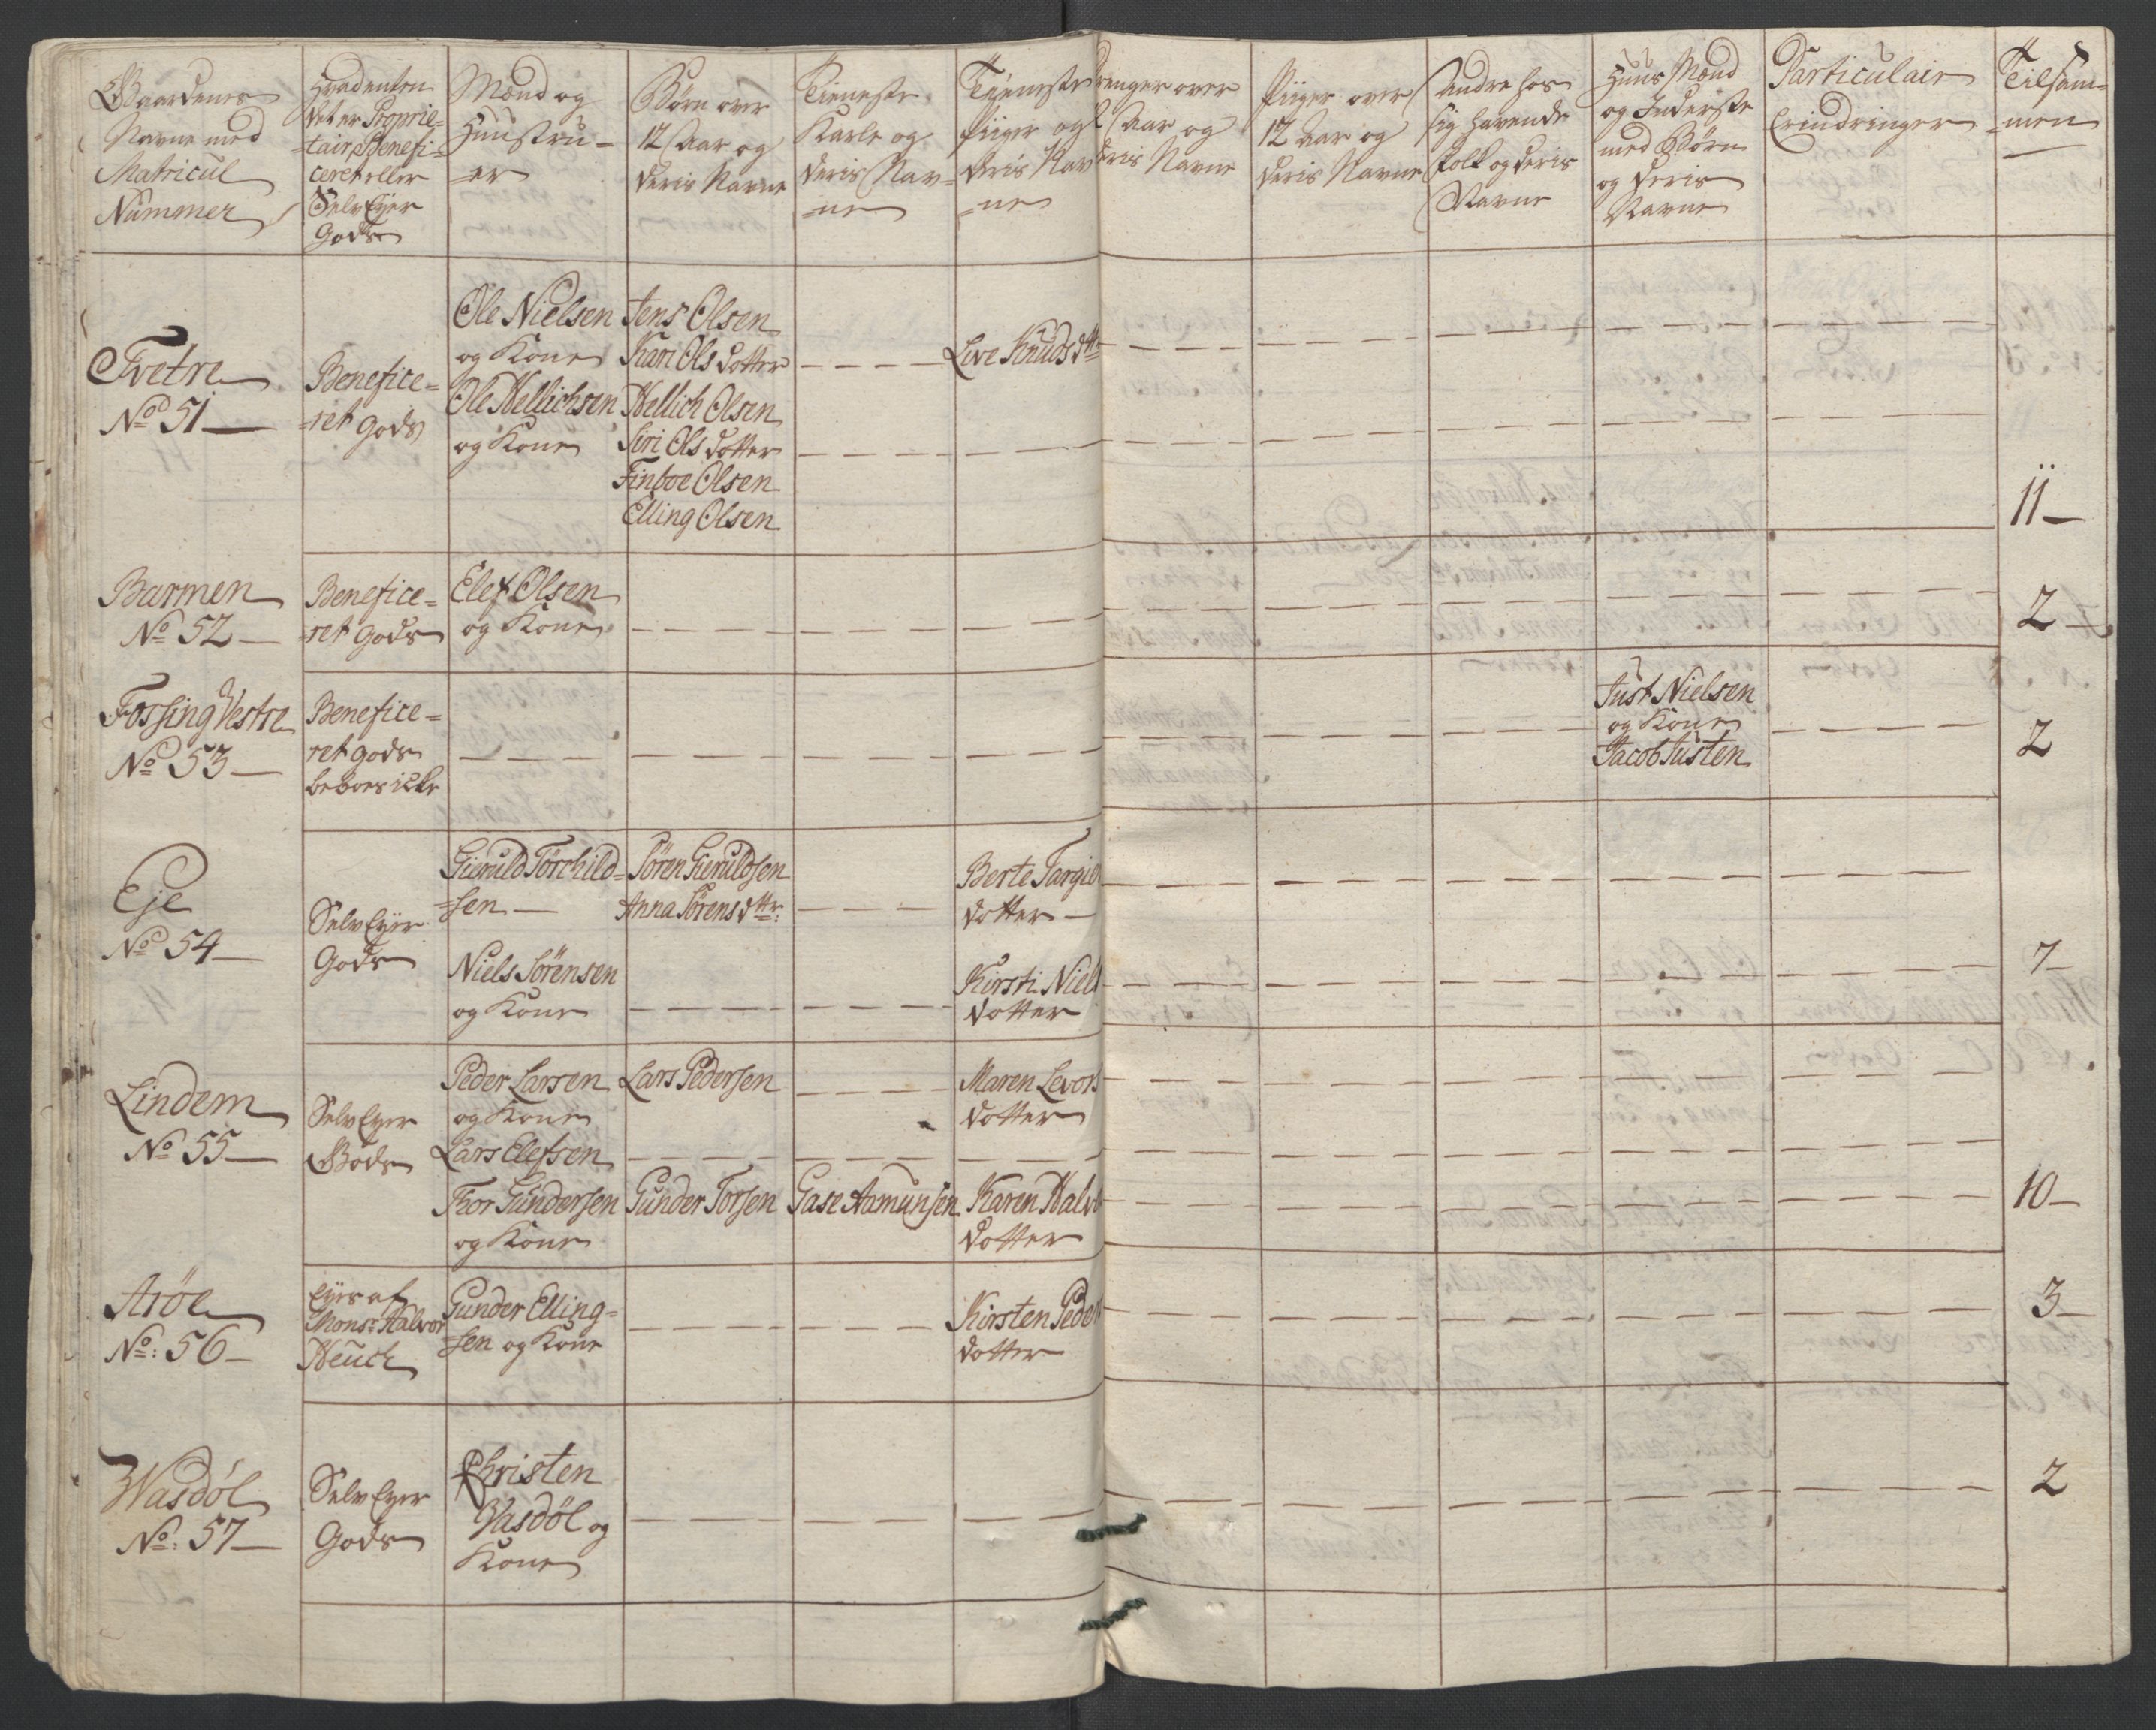 Gaardenes
Navne med
Matricul
Nummer
Hvadenten
det er Proprie-
tair, Benefi-
ceret eller
Selv Eyer
Gods
Mænd og
Huustru-
er
Børn over
12 Aar og
deris Navne
Tieneste
Karle og
deris Nav-
ne
Tienneste
Piiger og
deris Nav
ne
renger over
Aar og
deris Navne
Piiger over
12 Aar og
deris Navne
Andre hos
sig havende
Folk og deris
Navne
Huus Mænd
og Inderste
med Børn
og deris
Navne
Particulair
Erindringer
Tilsam-
men
Tvetre
No 51
Benefice-
ret gods
Ole Nielsen
og Kone
Ole Hellichsen
og Kone
Jens Olsen
Kari Ols dotter
Hellich Olsen
Siri Ols dotter
Finboe Olsen
Elling Olsen
Live Knuds dttr
11
Barmen
No 52
Benefice-
ret gods
Elef Olsen
og Kone
2
Fossing Vestre
No 53
Benefice-
ret gods
beboes icke
Just Nielsen
og Kone
Jacob Justen
2
Eje
No 54
Selv Eyer
Gods
Gieruld Törchild-
sen
Niels Sörensen
og Kone
Sören Gieruldsen
Anna Sörens dttr:
Berte Targie
dotter
Kirsti Niels
dotter
7
Lindem
No 55
Selv Eyer
Gods
Peder Larsen
og Kone
Lars Elefsen
Thor Gundersen
og Kone
Lars Pedersen
Gunder Torsen
Gase Aamunsen
Maren Levors
dotter
Karen Halvo
dotter
10
Aröe
No: 56
Eyes af
Monsr Halvor
Heuch
Gunder Elling-
sen og Kone
Kirsten Peders
dotter
3
Wasdöl
No: 57
Selv Eyer
Gods
Christen
Vasdöl og
Kone
2